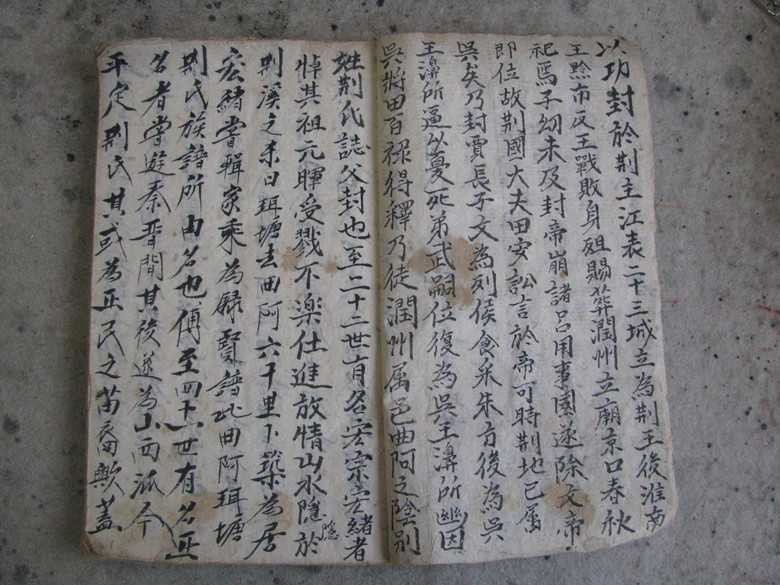 以功封於荆主江表二十三城立為荆王後淮南
王黥布反王戰敗身殂賜葬潤州立廟京口春秋
祀焉子幼未及封帝崩諸吕用事國遂除文帝
即位故荆國大夫田安訟言於帝可時荆地已属
吳矣乃封賈長子文為列侯食采朱方後為吳
王濞所逼以憂死弟武嗣位復為吳王濞所幽因
吳將田百禄得釋乃徒潤州属邑曲阿之陰别
姓荆氏誌父封也至二十二世有名宏宗宏緒者
悼其祖元暉受戮不楽仕進放情山水隱於
荆溪之未曰珥塘去曲阿六十里卜築為居
宏緒嘗輯家乘為縣賢譜此曲阿珥塘
荆氏族譜所由名也傳至四十一世有名正
名者嘗遊秦晋間其後遂為山西派今
平定荆氏其或為正民之苗裔歟蓋